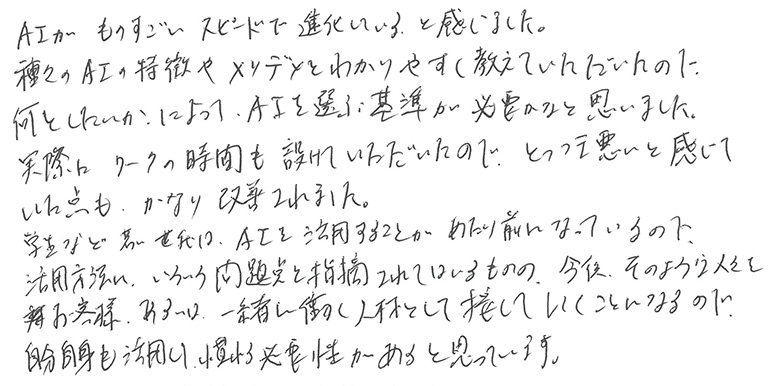 AIが ものすごい スピードで 進化している、と感じました。
種々のAIの特徴や メリデメをわかりやすく教えていただいたので、
何をしたいか、によって、AIを選ぶ基準が必要かなと思いました。
実際に ワークの時間も 設けていただいたので、とっつき悪いと感じて
いた点も、かなり 改善されました。
学生など 若い世代は、AIを活用することが あたり前になっているので、
活用方法に、いろいろ問題点を指摘されてはいるものの、今後、そのような人たちを
お客様、あるいは、一緒に働く人材として接していくことになるので、
自分自身も活用し、慣れる必要性があると思っています。